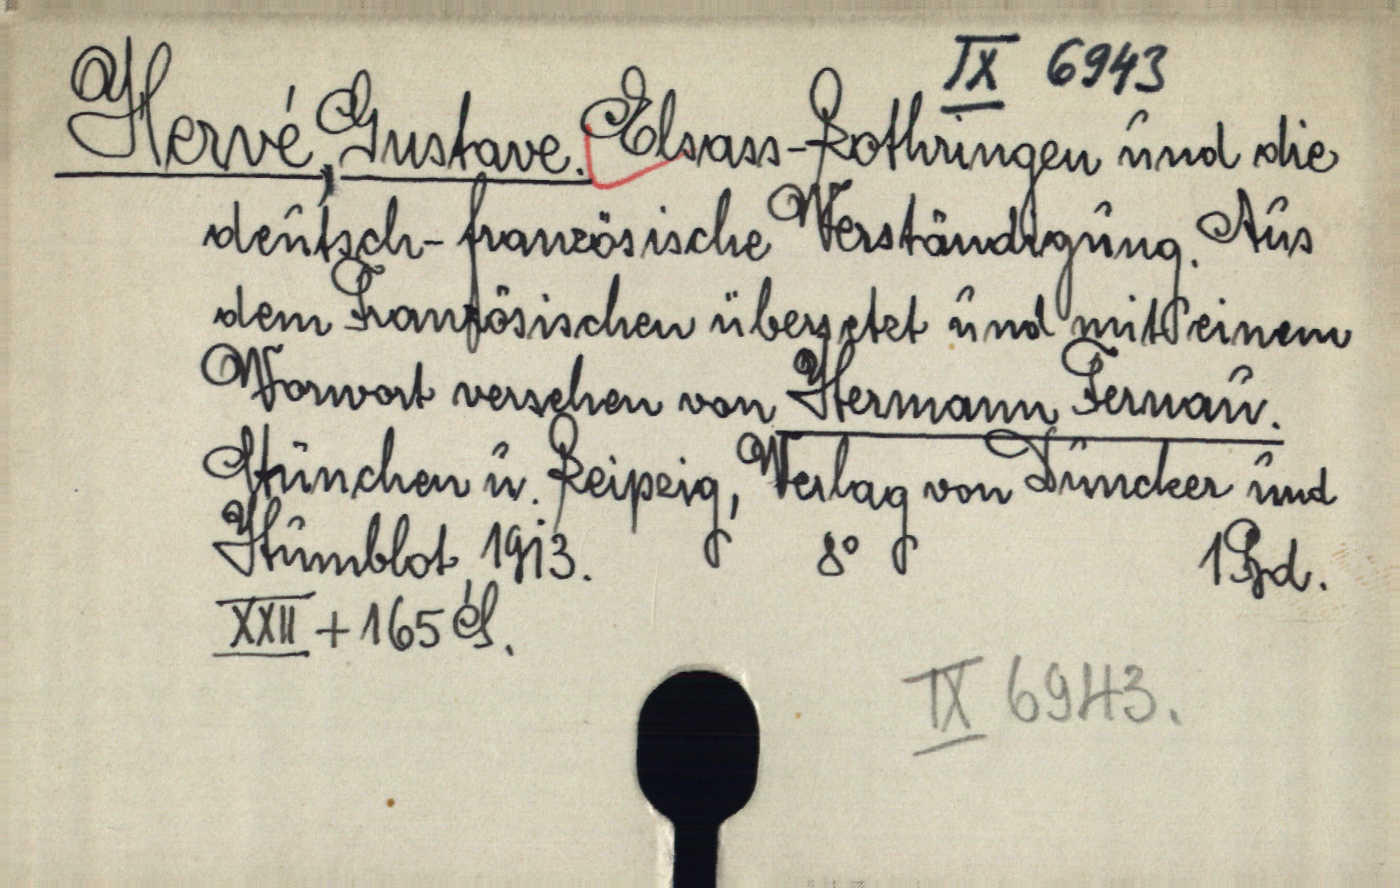 IX 6943
Hervé, Gustave. Elsass-Lothringen und die
deutsch-französische Verständigung. Aus
dem Französischen übersetzt und mit einem
Vorwort versehen von Hermann Fernau.
München u. Leipzig, Verlag von Duncker und
Humblot, 1913. 8° 1 Bd.
XXII + 165 S.
IX 6943.